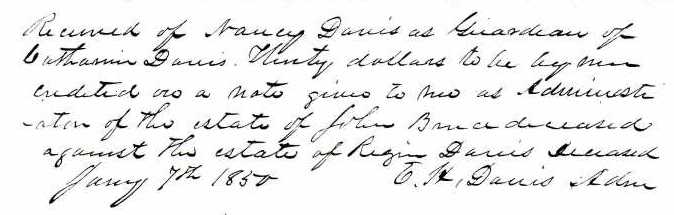 Received of Nancy Davis as Guardian of
Catharin Davis Thirty dollars to be by me
credited on a note given to me as Administ
-rator of the estate of John Bruce deceased
against the estate of Regin Davis deceased
Jany 7th 1850 E. H. Davis Adm